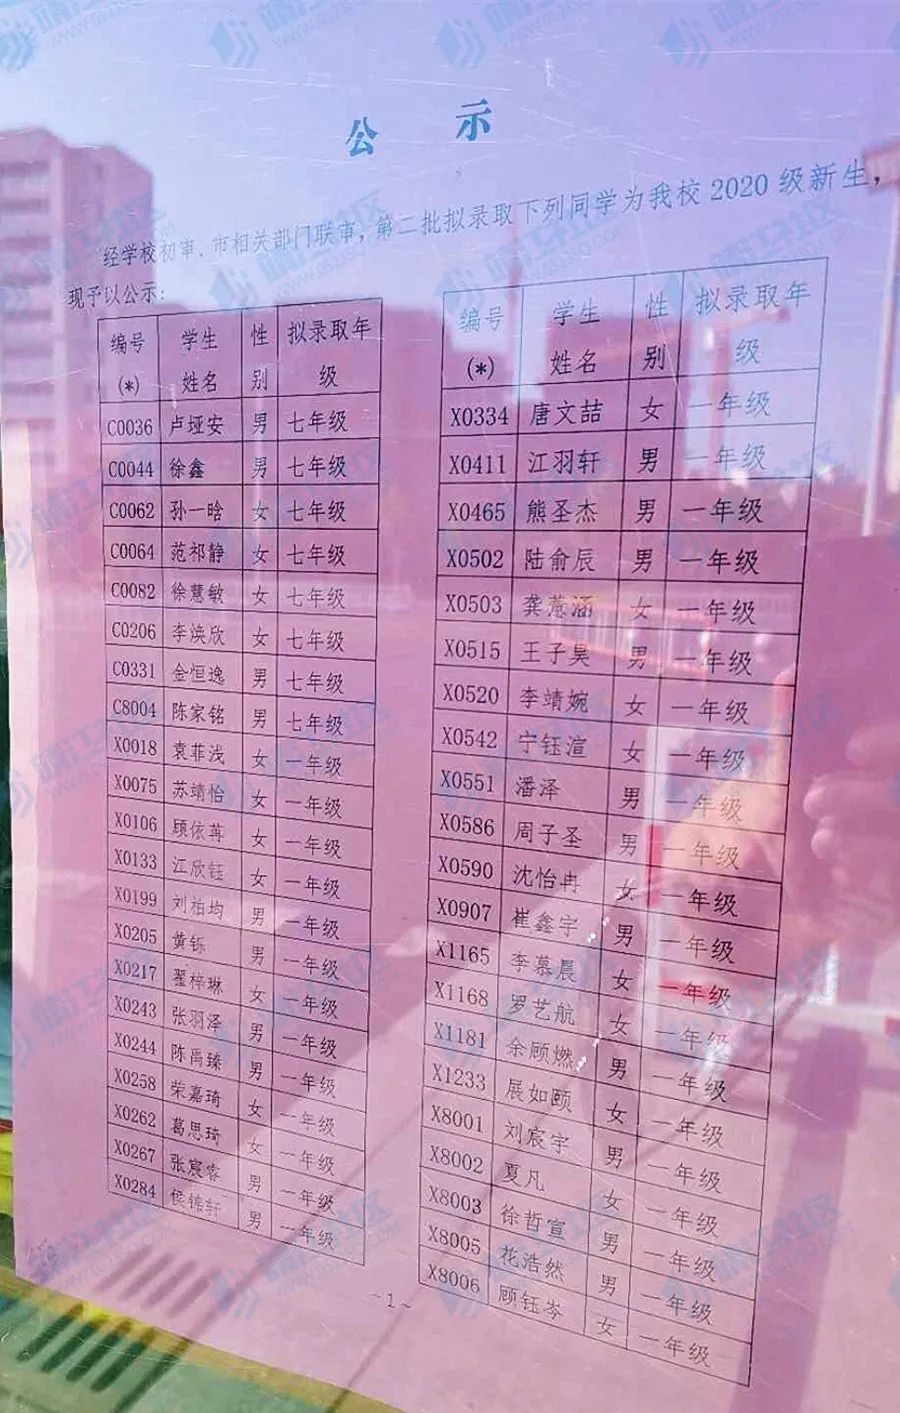 公 示
经学校初审、市相关部门联审，第二批拟录取下列同学为我校2020级新生，
现予以公示：
编号(*) 学生姓名 性别 拟录取年级
C0036 卢垭安 男 七年级
C0044 徐鑫 男 七年级
C0062 孙一晗 女 七年级
C0064 范祁静 女 七年级
C0082 徐慧敏 女 七年级
C0206 李焕欣 女 七年级
C0331 金恒逸 男 七年级
C8004 陈家铭 男 七年级
X0018 袁菲浅 女 一年级
X0075 苏靖怡 女 一年级
X0106 顾依苒 女 一年级
X0133 江欣钰 女 一年级
X0199 刘柏均 男 一年级
X0205 黄铄 男 一年级
X0217 翟梓琳 女 一年级
X0243 张羽泽 男 一年级
X0244 陈禹臻 男 一年级
X0258 荣嘉琦 女 一年级
X0262 葛思琦 女 一年级
X0267 张宸睿 男 一年级
X0284 侯锦轩 男 一年级
编号(*) 学生姓名 性别 拟录取年级
X0334 唐文喆 女 一年级
X0411 江羽轩 男 一年级
X0465 熊圣杰 男 一年级
X0502 陆俞辰 男 一年级
X0503 龚薏涵 女 一年级
X0515 王子昊 男 一年级
X0520 李靖婉 女 一年级
X0542 宁钰渲 女 一年级
X0551 潘泽 男 一年级
X0586 周子圣 男 一年级
X0590 沈怡冉 女 一年级
X0907 崔鑫宇 男 一年级
X1165 李慕晨 女 一年级
X1168 罗艺航 女 一年级
X1181 余顾燃 男 一年级
X1233 展如颐 女 一年级
X8001 刘宸宇 男 一年级
X8002 夏凡 女 一年级
X8003 徐哲宣 男 一年级
X8005 花浩然 男 一年级
X8006 顾钰岑 女 一年级
~1~
靖江社区
WWW.0523SQ.COM